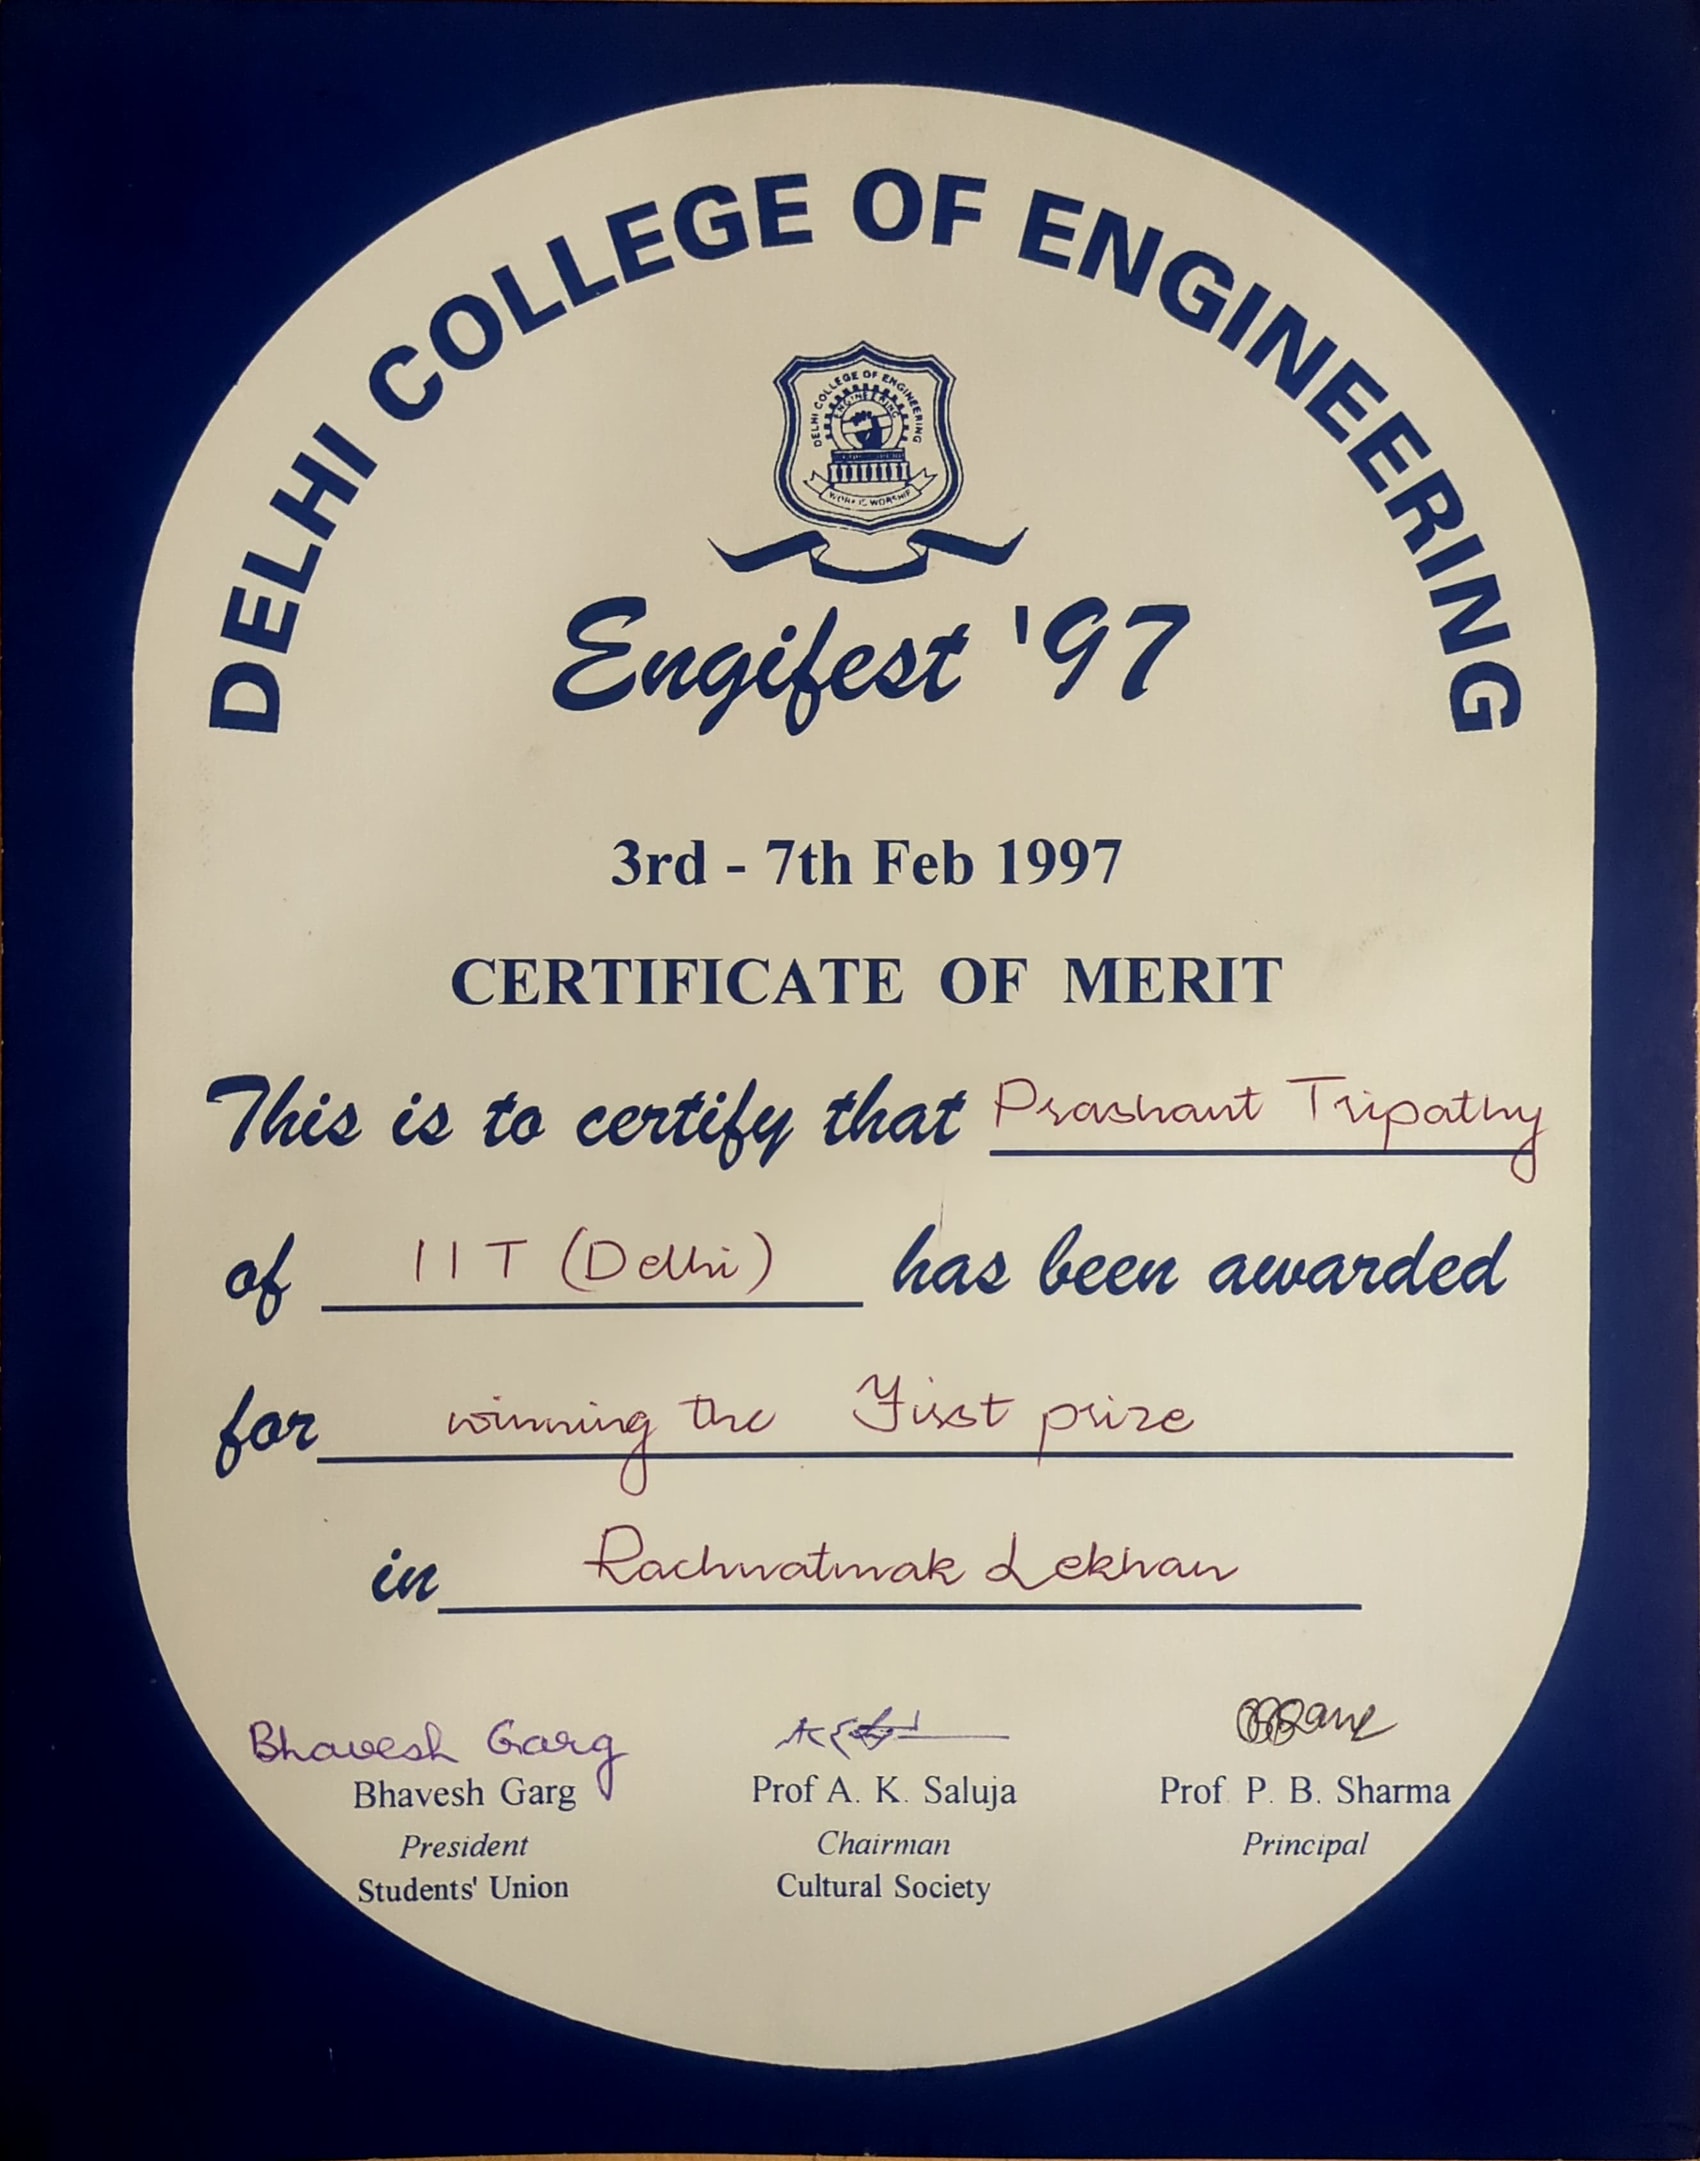 DELHI COLLEGE OF ENGINEERING
DELHI COLLEGE OF ENGINEERING
ENGINEERING
WORK IS WORSHIP
Engifest '97
3rd - 7th Feb 1997
CERTIFICATE OF MERIT
This is to certify that Prashant Tripathy
of IIT (Delhi) has been awarded
for winning the First prize
in Rachnatmak Lekhan
Bhavesh Garg
Bhavesh Garg Prof A. K. Saluja Prof. P. B. Sharma
President Chairman Principal
Students' Union Cultural Society